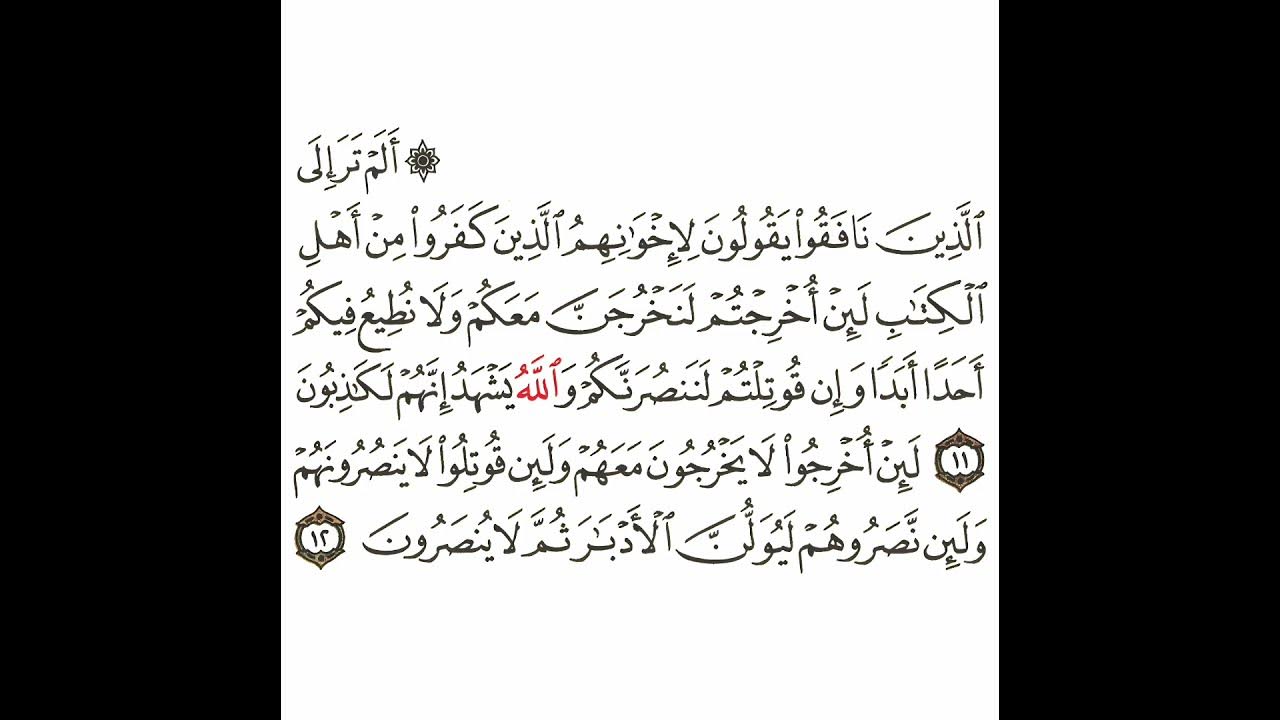 ۞ أَلَمۡ تَرَ إِلَى
ٱلَّذِينَ نَافَقُواْ يَقُولُونَ لِإِخۡوَٰنِهِمُ ٱلَّذِينَ كَفَرُواْ مِنۡ أَهۡلِ
ٱلۡكِتَٰبِ لَئِنۡ أُخۡرِجۡتُمۡ لَنَخۡرُجَنَّ مَعَكُمۡ وَلَا نُطِيعُ فِيكُمۡ
أَحَدًا أَبَدًا وَإِن قُوتِلۡتُمۡ لَنَنصُرَنَّكُمۡ وَٱللَّهُ يَشۡهَدُ إِنَّهُمۡ لَكَٰذِبُونَ
١١ لَئِنۡ أُخۡرِجُواْ لَا يَخۡرُجُونَ مَعَهُمۡ وَلَئِن قُوتِلُواْ لَا يَنصُرُونَهُمۡ
وَلَئِن نَّصَرُوهُمۡ لَيُوَلُّنَّ ٱلۡأَدۡبَٰرَ ثُمَّ لَا يُنصَرُونَ ١٢